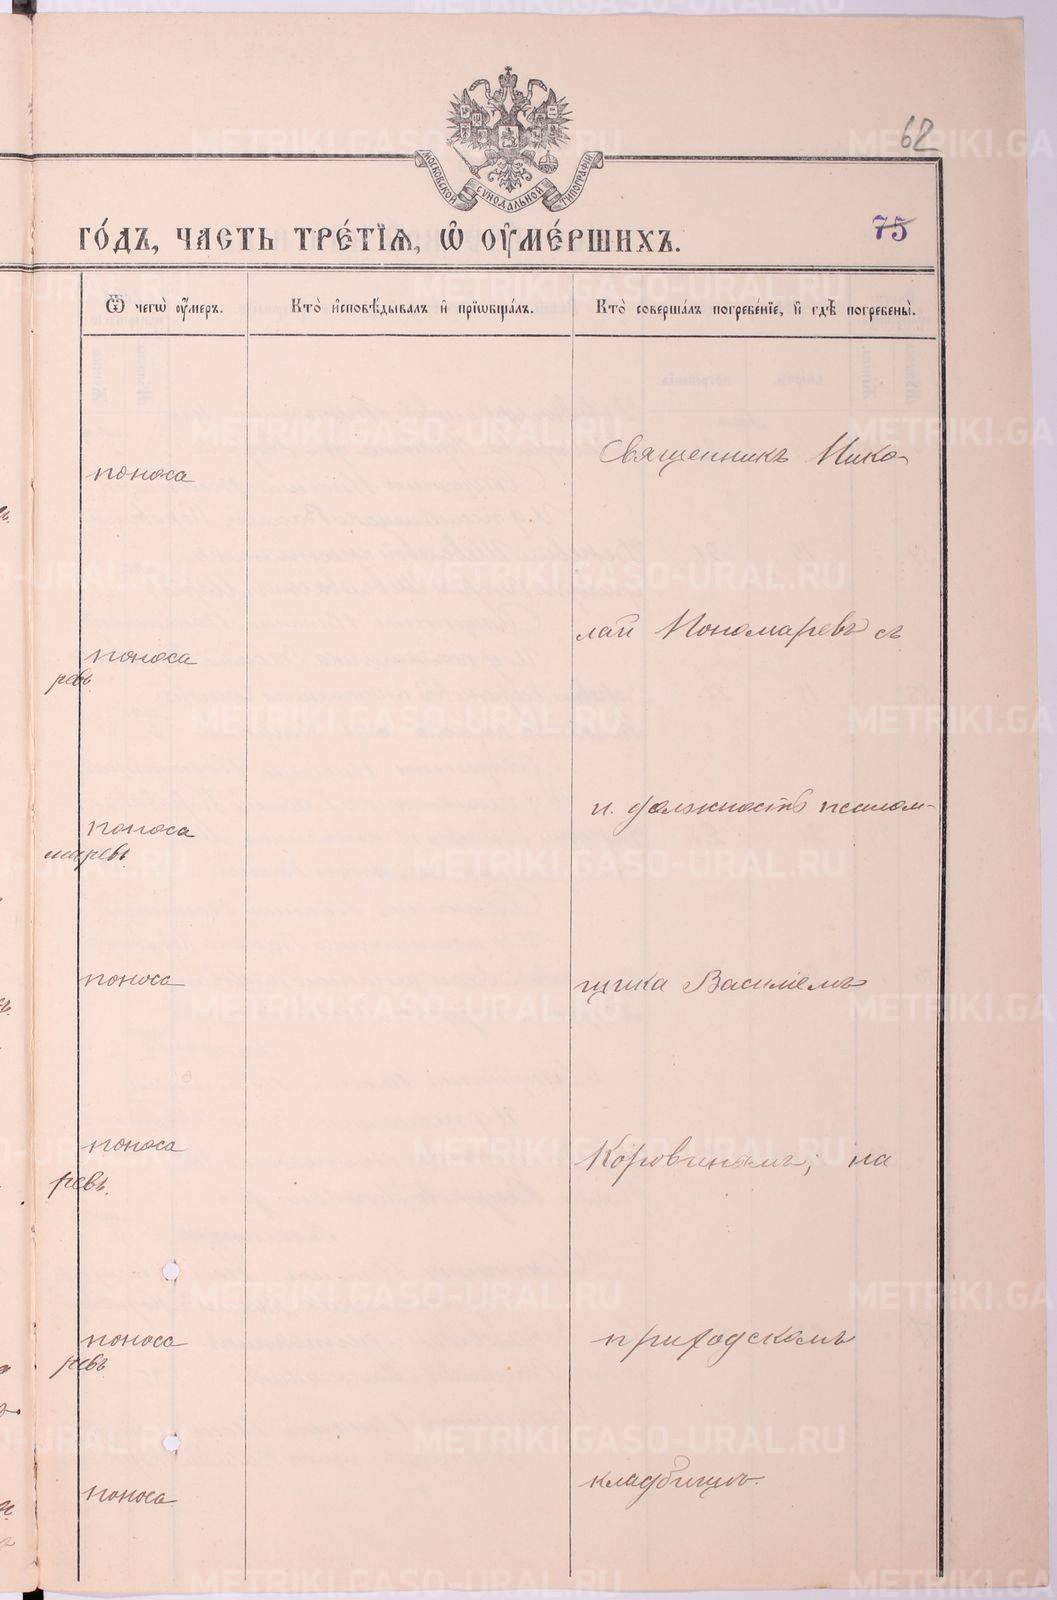 62
МОСКОВСКОЙ СѴНОДАЛЬНОЙ ТИПОГРАФІИ
75
ГО́ДЪ, ЧАСТЬ ТРЕ́ТІѦ, Ѡ҆ ОУ҆МЕ́РШИХЪ.
Ѿ чегѡ̀ ᲂу҆́меръ.
Кто̀ и҆сповѣ́дывалъ и҆ прїѡбща́лъ.
Кто̀ соверша́лъ погребе́нїе, и҆ гдѣ̀ погребены̀.
поноса
Священникъ Нико-
поноса
ревъ
лай Пономаревъ съ
поноса
маревъ
и. должность псалом-
поноса
щика Василіемъ
поноса
ревъ.
Коровинымъ; на
поноса
ревъ
приходскомъ
поноса
кладбищѣ.
METRIKI.GASO-URAL.RU